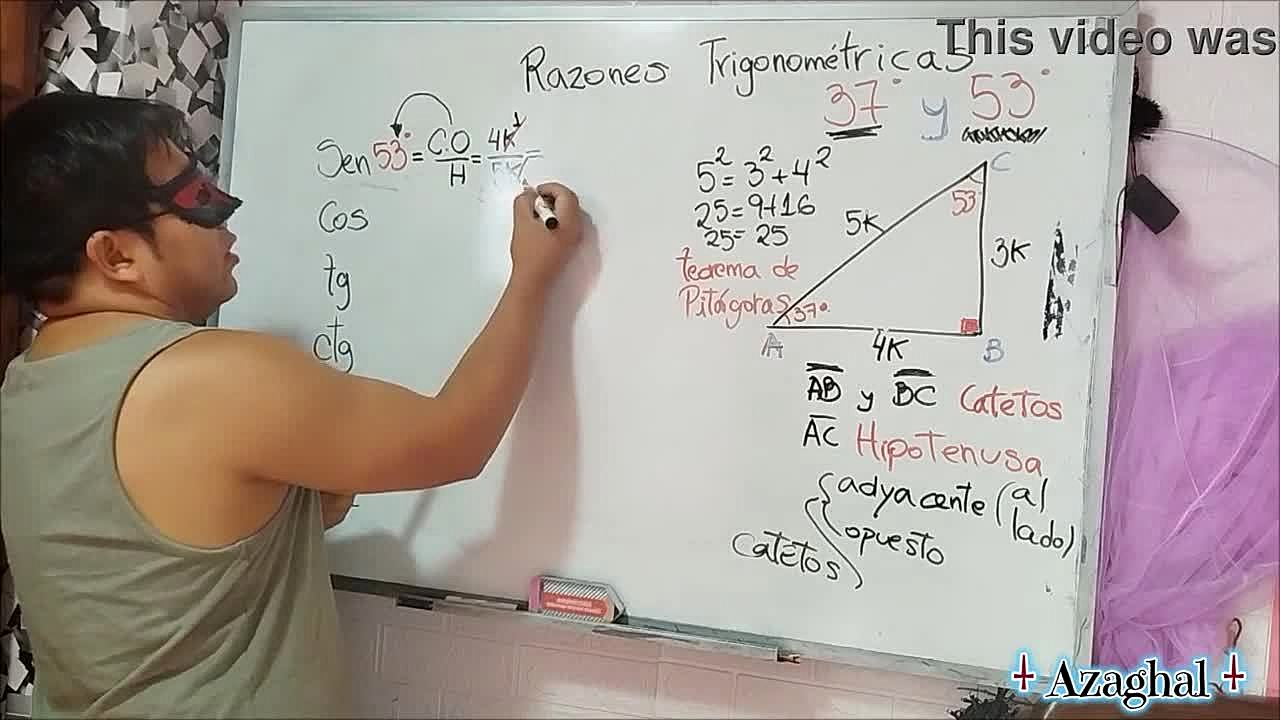 This video was
Razones Trigonométricas
37° y 53°
Sen 53° = C.O / H = 4K / 5K =
Cos
tg
ctg
5² = 3² + 4²
25 = 9+16
25 = 25
teorema de
Pitágoras
C
53
5K
3K
37°
A
4K
B
AB y BC Catetos
AC Hipotenusa
Catetos
adyacente (al lado)
opuesto
Azaghal